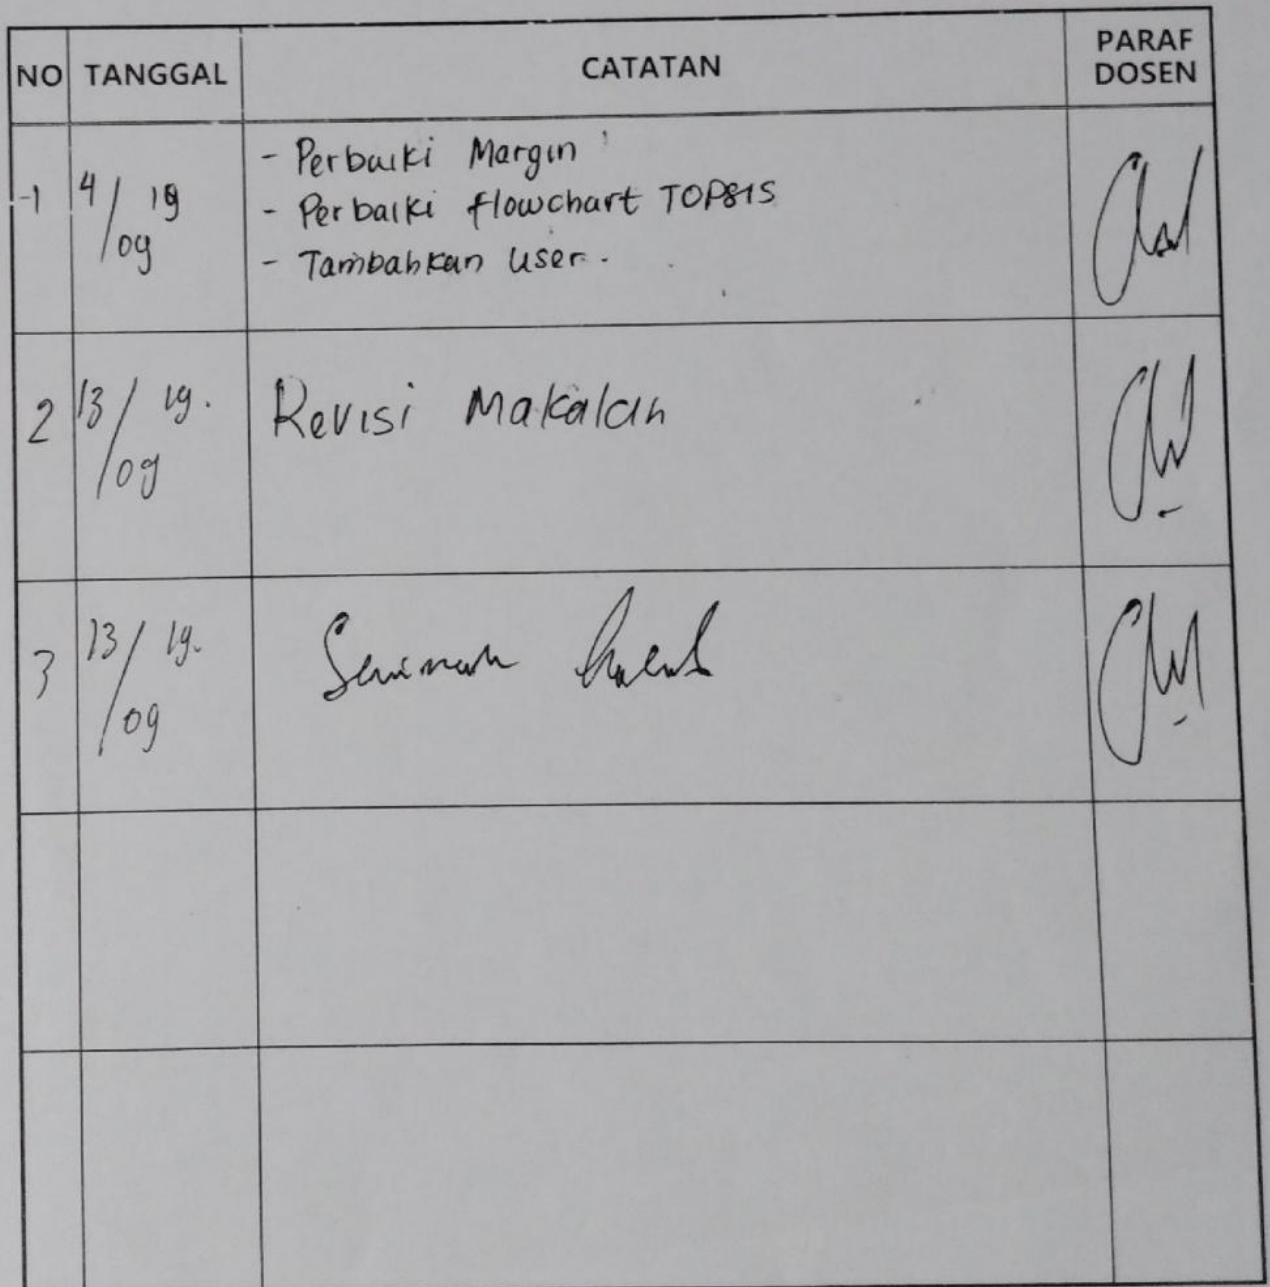 NO TANGGAL CATATAN PARAF DOSEN
1 4/09 19 - Perbaiki Margin
- Perbaiki flowchart TOPSIS
- Tambahkan user.
2 13/09 19. Revisi Makalah
3 13/09 19. Seminar